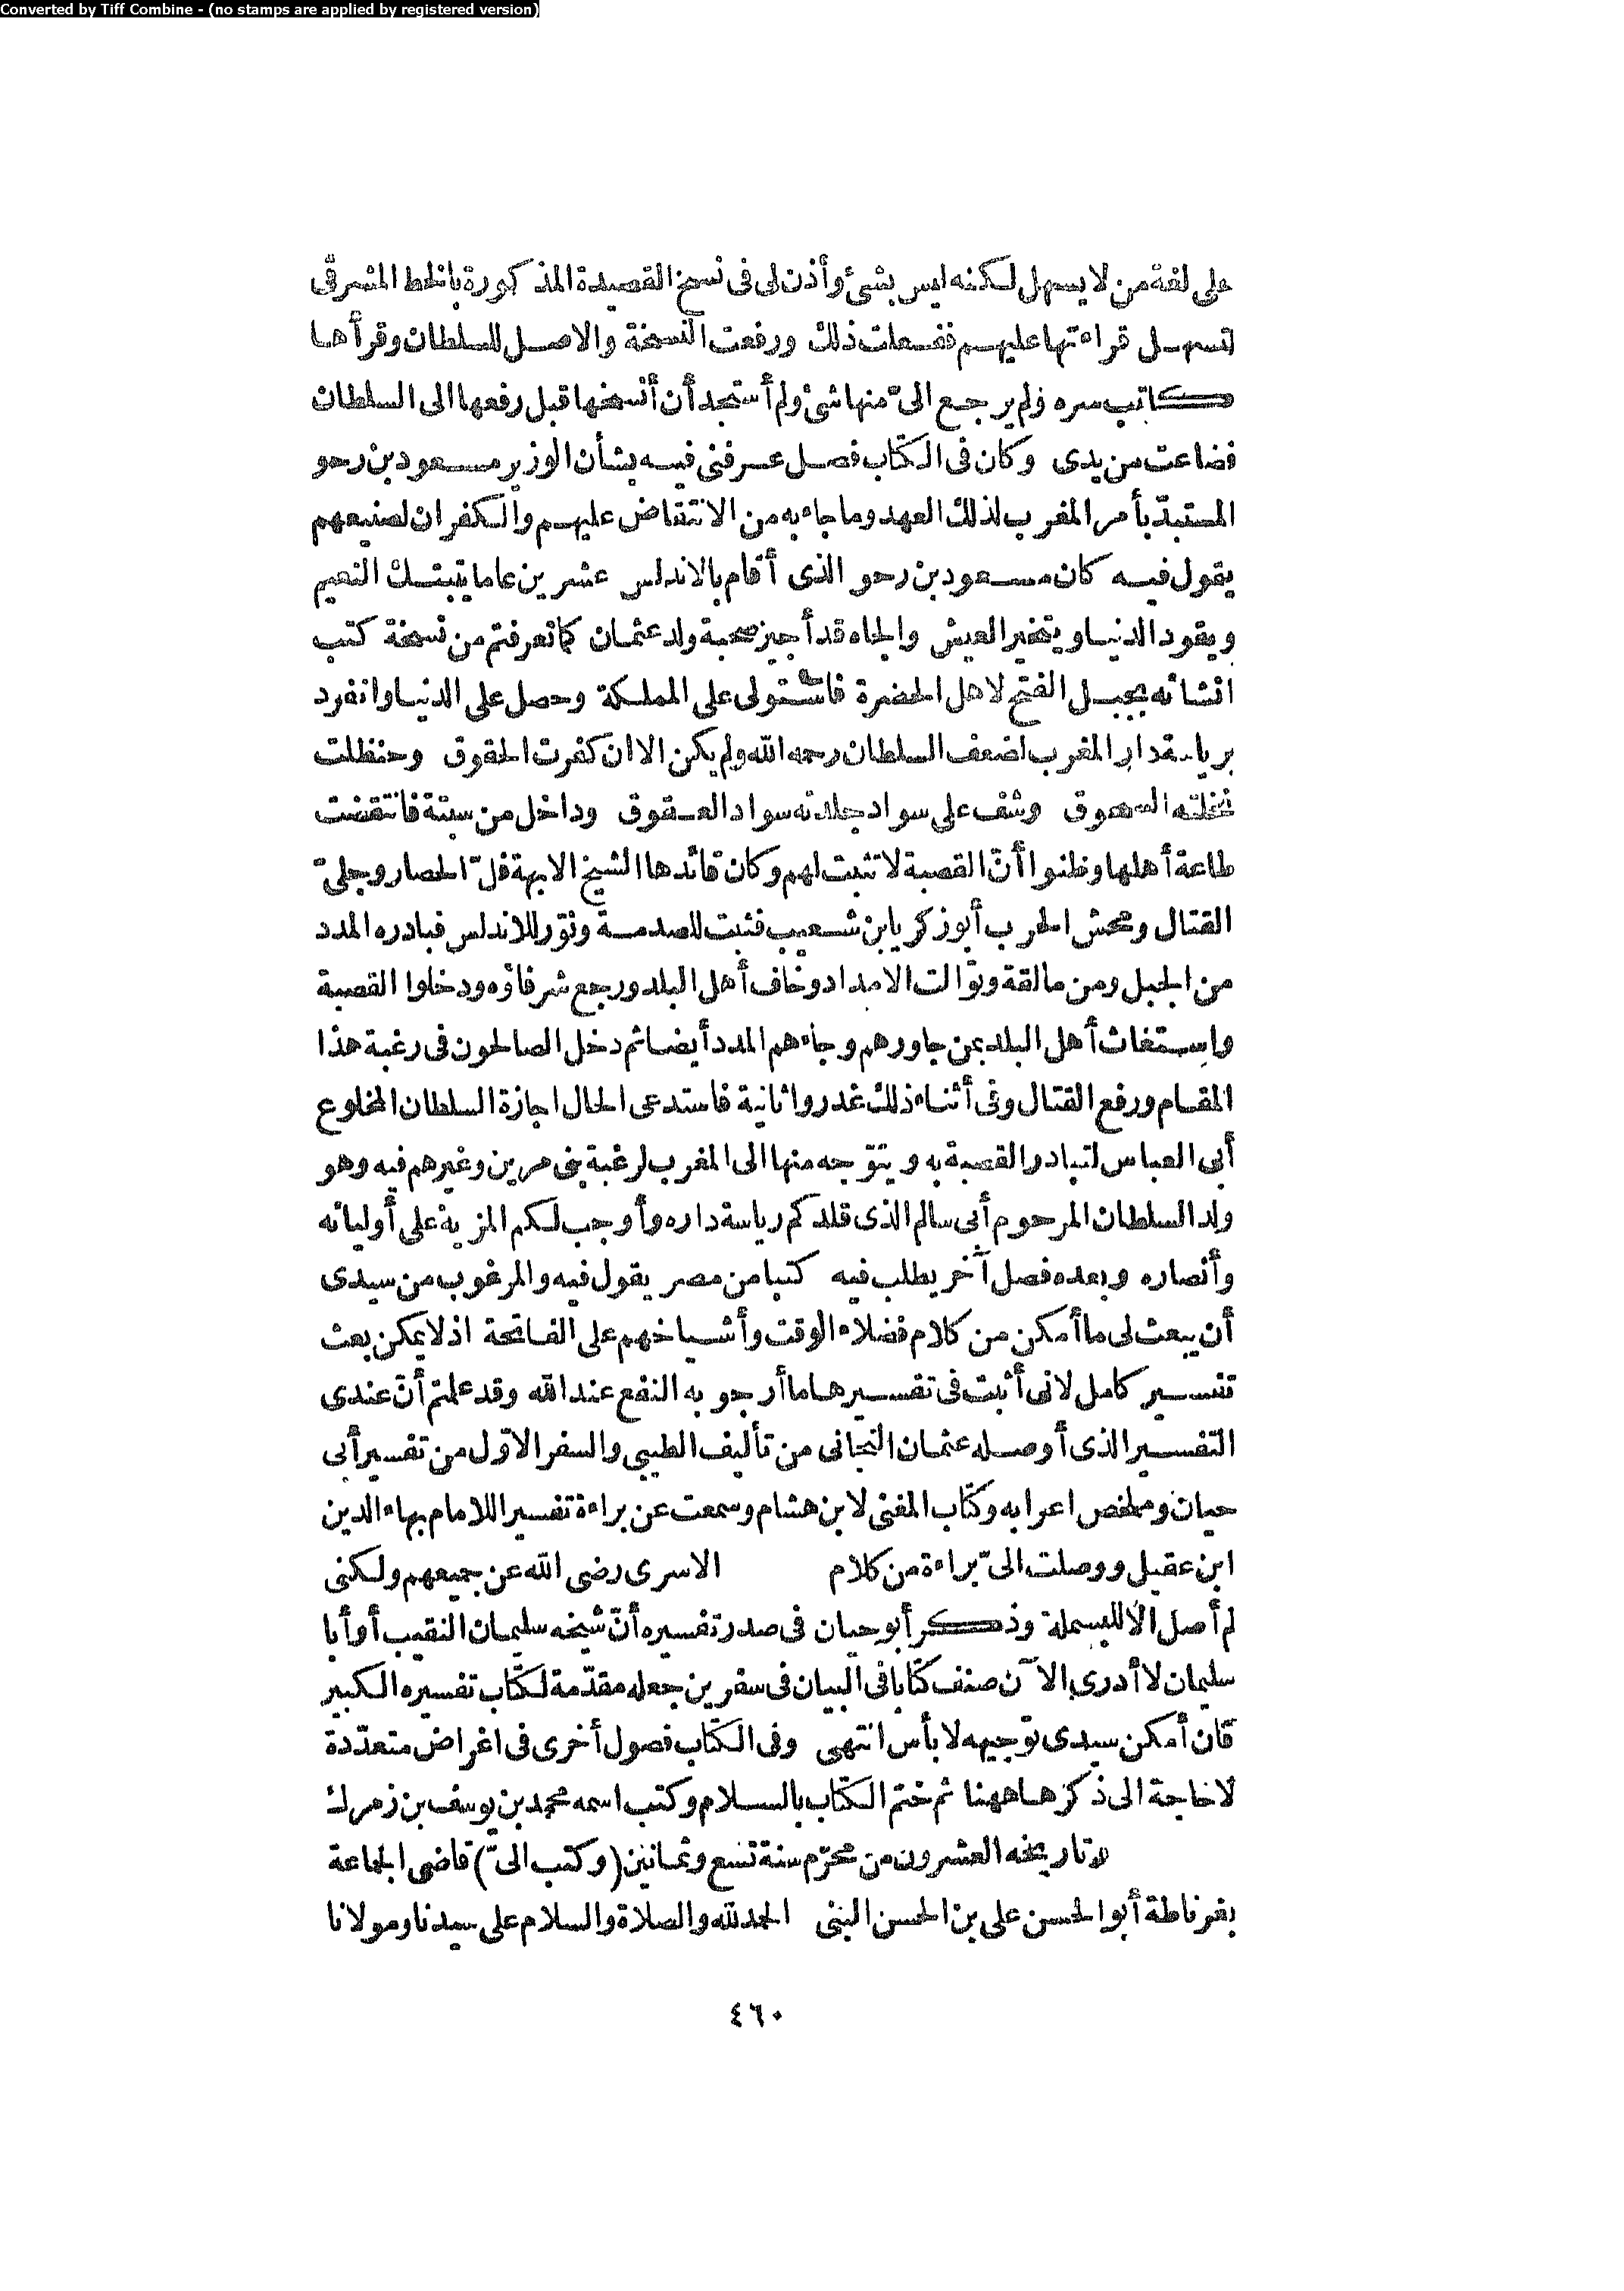 Converted by Tiff Combine - (no stamps are applied by registered version)
على لغة من لا يسهل لكنه ليس بشئ وأذن لى فى نسخ القصيدة المذكورة بالخط المشرقى
لتسهل قراءتها عليهم ففعلت ذلك ورفعت النسخة والاصل للسلطان وقرأها
كاتب سره ولم يرجع الىّ منها شئ ولم أستجد أن أنسخها قبل رفعها الى السلطان
فضاعت من يدى وكان فى الكتاب فصل عرفنى فيه بشأن الوزير مسعود بن رحو
المستبدّ بأمر المغرب لذلك العهد وما جاء به من الانتقاض عليهم والكفران لصنيعهم
يقول فيه كان مسعود بن رحو الذى أقام بالاندلس عشرين عاما يتبنك النعيم
ويقود الدنيا ويتخير العيش والجاه قد أجيز صحبة ولد عثمان كما تعرفتم من نسخة كتب
انشائه بجبل الفتح لاهل الحضرة فاستولى على المملكة وحصل على الدنيا وانفرد
برياسة دار المغرب لضعف السلطان رحمه الله ولم يكن الا ان كفرت الحقوق وحنظلت
نخلته السحوق وشف على سواد جلدته سواد العقوق وداخل من سبتة فانتقضت
طاعة أهلها وظنوا أنّ القصبة لا تثبت لهم وكان قائدها الشيخ الابهة فلّ الحصار وجلىّ
القتال ومحش الحرب أبو زكريا بن شعيب فثبت للصدمة ونوّر للاندلس فبادره المدد
من الجبل ومن مالقة وتوالت الامداد وخاف أهل البلد ورجع شرفاؤه ودخلوا القصبة
واستغاث أهل البلد بمن جاورهم وجاءهم المدد أيضا ثم دخل الصالحون فى رغبة هذا
المقام ورفع القتال وفى أثناء ذلك غدروا ثانية فاستدعى الحال اجازة السلطان المخلوع
أبى العباس لتبادر القصبة به ويتوّجه منها الى المغرب لرغبة بنى مرين وغيرهم فيه وهو
ولد السلطان المرحوم أبى سالم الذى قلدكم رياسة داره وأوجب لكم المزية على أوليائه
وأنصاره وبعده فصل آخر يطلب فيه كتبا من مصر يقول فيه والمرغوب من سيدى
أن يبعث لى ما أمكن من كلام فضلاء الوقت وأشياخهم على الفاتحة اذ لا يمكن بعث
تفسير كامل لانى أثبت فى تفسيرها ما أرجو به النفع عند الله وقد علمتم أنّ عندى
التفسير الذى أوصله عثمان النجانى من تأليف الطيبى والسفر الاوّل من تفسير أبى
حيان وملخص اعرابه وكتاب المغنى لابن هشام وسمعت عن براءة تفسير اللامام بهاء الدين
ابن عقيل ووصلت الىّ براءة من كلام الاسرى رضى الله عن جميعهم ولكنى
لم أصل الا للبسملة وذكر أبو حيان فى صدر تفسيره أنّ شيخه سليمان النقيب أو أبا
سليمان لا أدرى الآن صنف كتابا فى البيان فى سفرين جعله مقدّمة لكتاب تفسيره الكبير
فان أمكن سيدى توجيهه لا بأس انتهى وفى الكتاب فصول أخرى فى اغراض متعدّدة
لا حاجة الى ذكرها ههنا ثم ختم الكتاب بالسلام وكتب اسمه محمد بن يوسف بن زمرك
وتاريخه العشرون من محرّم سنة تسع وثمانين (وكتب الىّ) قاضى الجماعة
بغرناطة أبو الحسن على بن الحسن البنى الحمد لله والصلاة والسلام على سيدنا ومولانا
٤٦٠